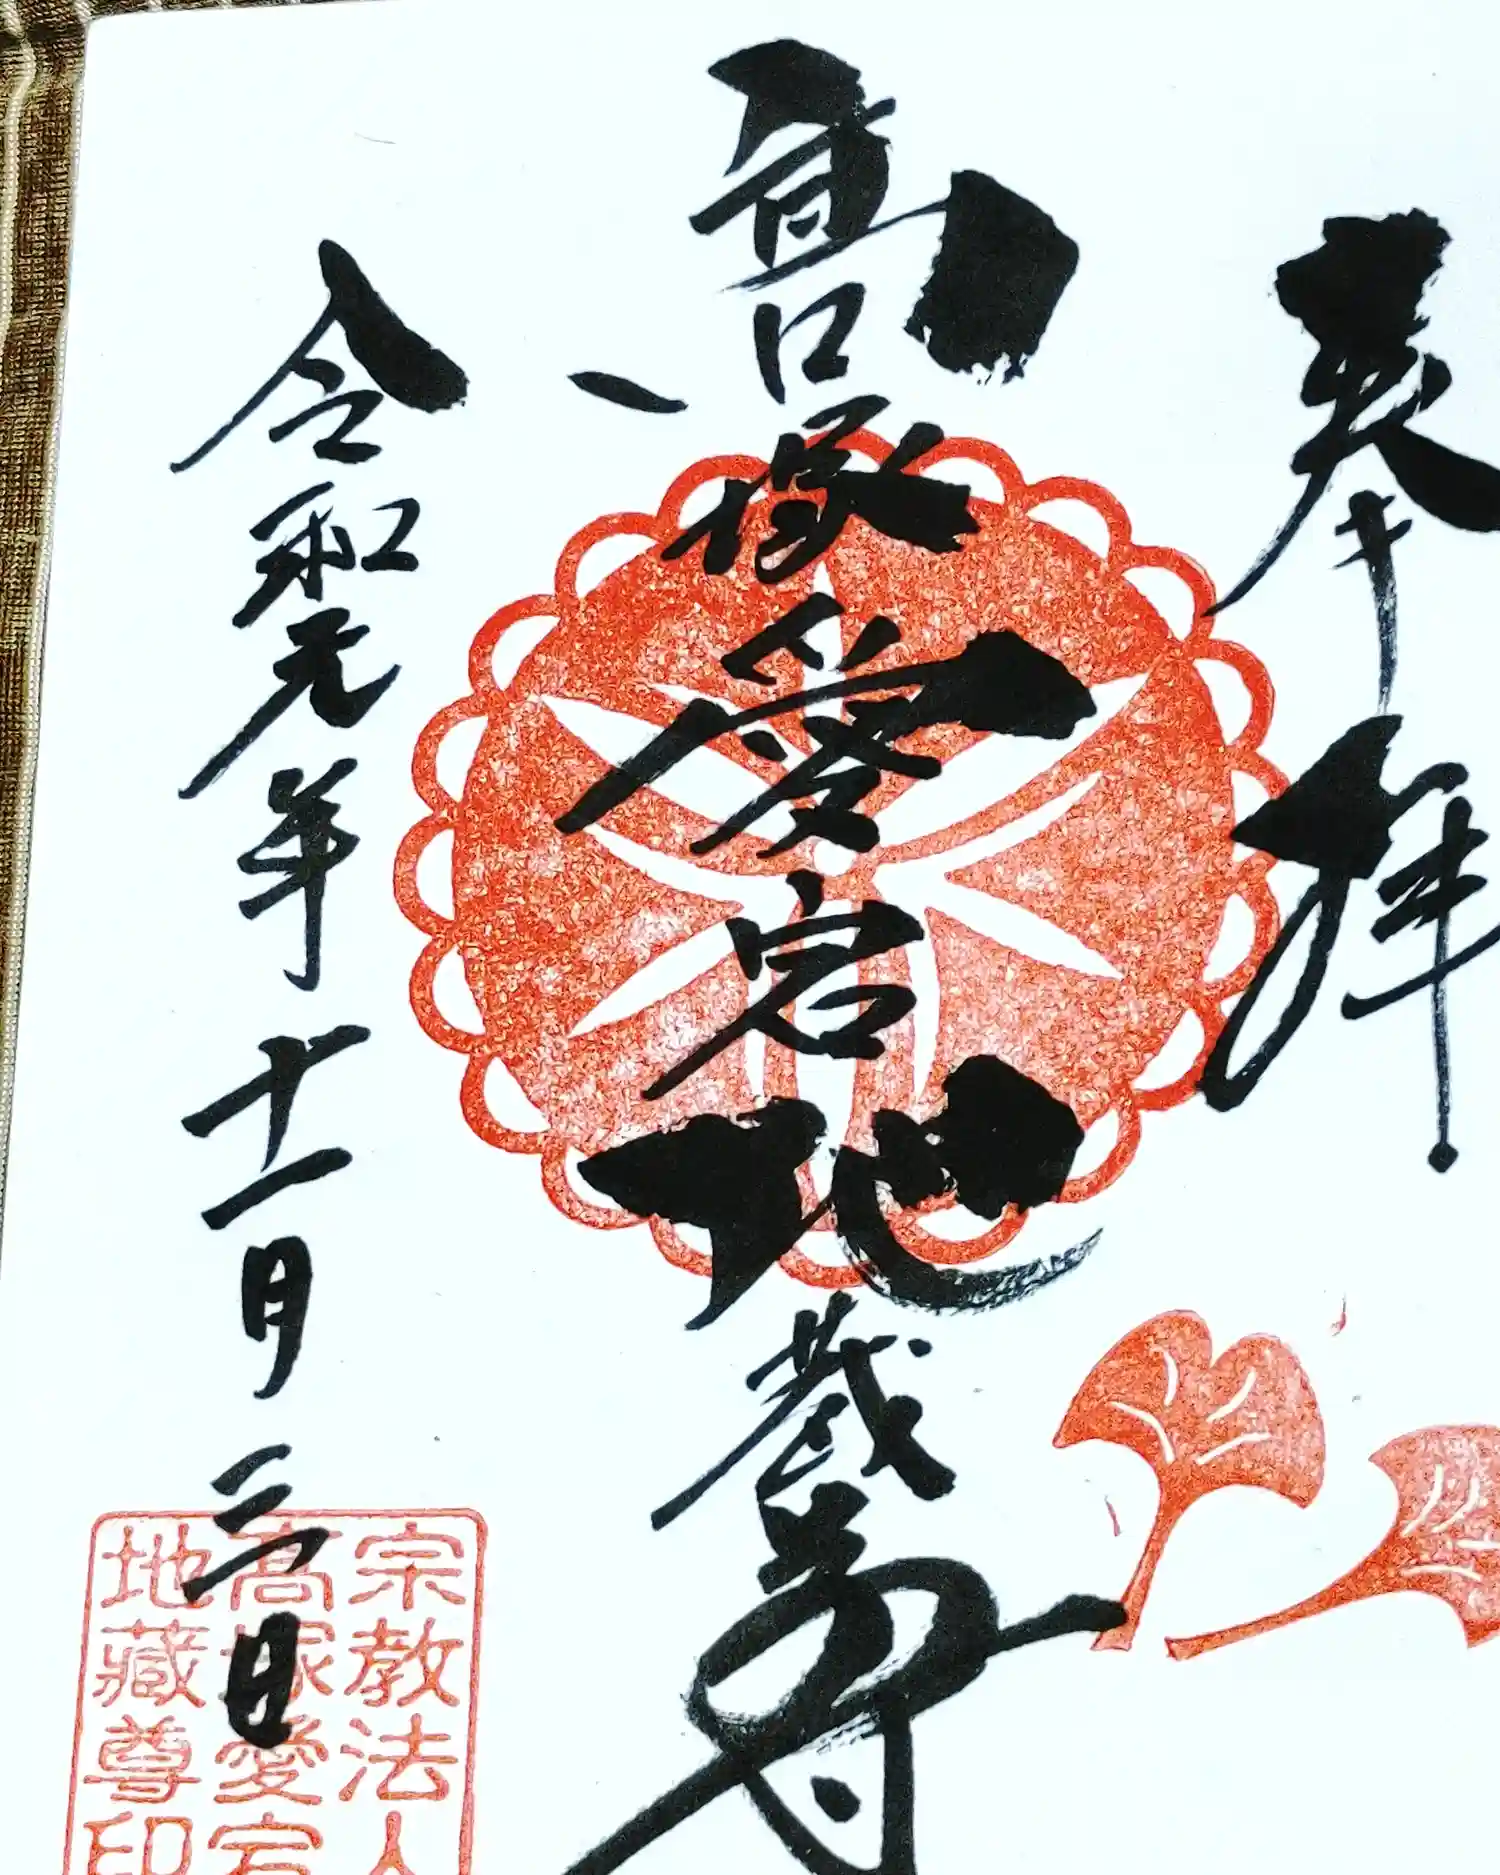 奉拝
髙塚愛宕地蔵尊
令和元年十一月三日
宗教法人
髙塚愛宕
地藏尊印